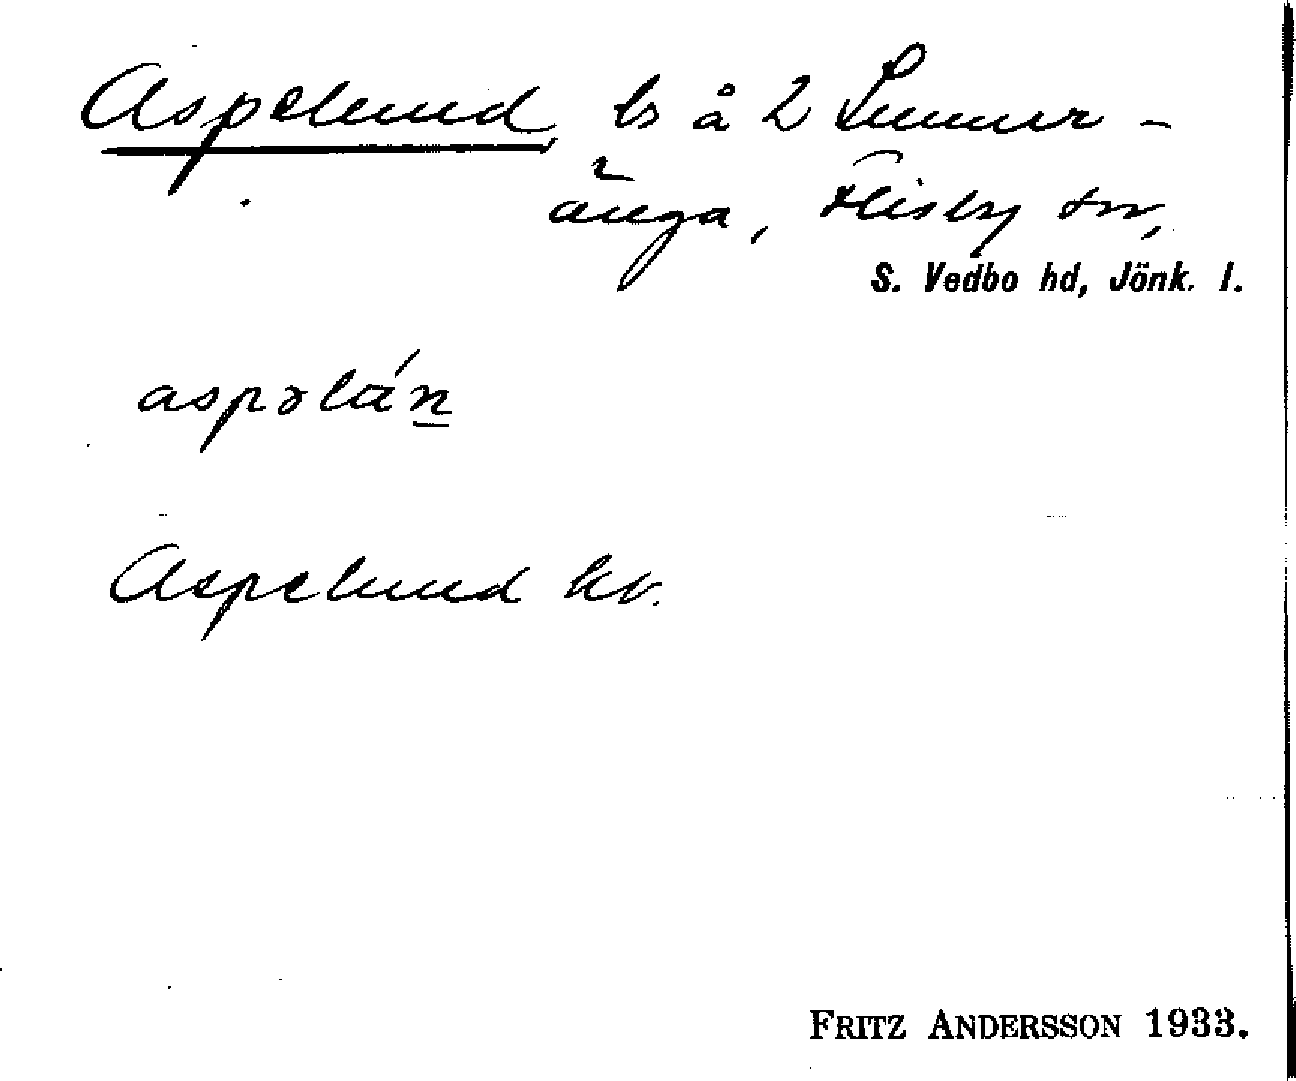 Aspelund ls å 2 Sunner-
änga, Flisby sn,
S. Vedbo hd, Jönk. l.
aspəlán
Aspelund kv.
FRITZ ANDERSSON 1933.